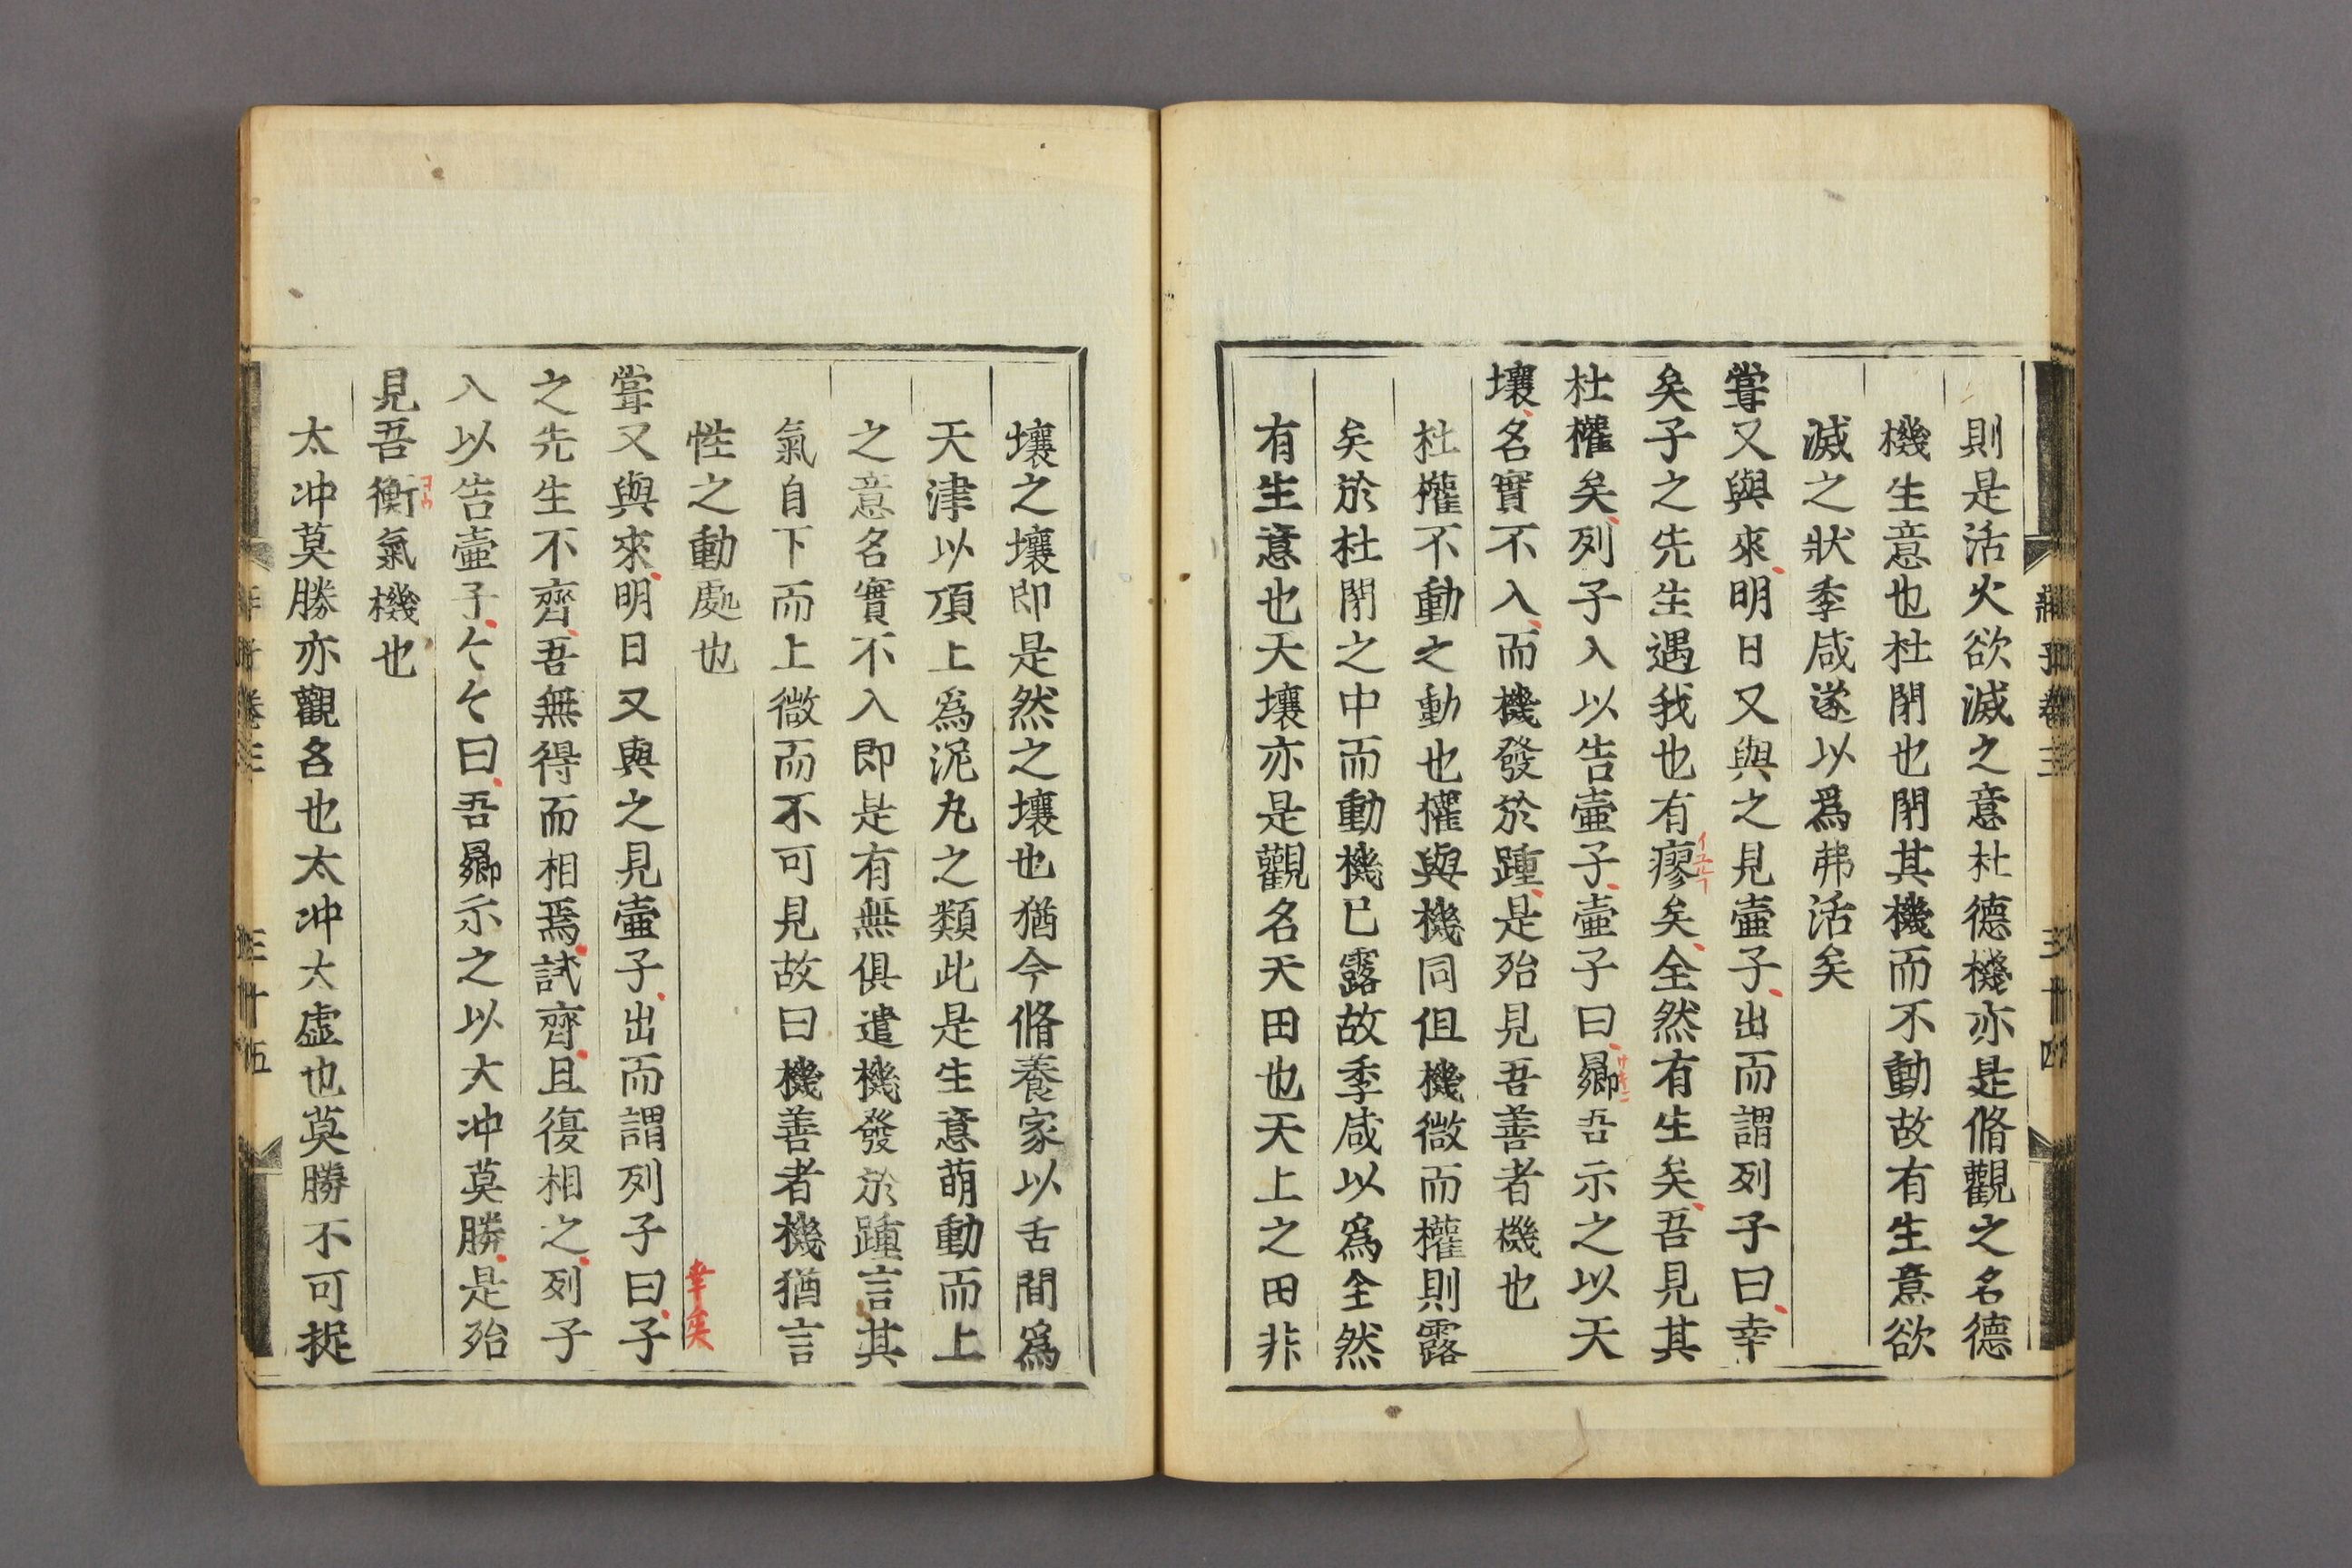 則是活火欲滅之意杜德機亦是脩觀之名德
機生意也杜閉也閉其機而不動故有生意欲
滅之狀季咸遂以爲弗活矣
甞又與來明日又與之見壷子出而謂列子曰幸
矣子之先生遇我也有瘳矣全然有生矣吾見其
イユル
杜權矣列子入以告壷子壷子曰曏吾示之以天
サキニ
壤名實不入而機發於踵是殆見吾善者機也
杜權不動之動也權與機同但機微而權則露
矣於杜閉之中而動機已露故季咸以爲全然
有生意也天壤亦是觀名天田也天上之田非
壤之壤即是然之壤也猶今脩養家以舌間爲
天津以頂上爲泥丸之類此是生意萌動而上
之意名實不入即是有無俱遣機發於踵言其
氣自下而上微而不可見故曰機善者機猶言
性之動處也
幸矣
甞又與來明日又與之見壷子出而謂列子曰子
之先生不齊吾無得而相焉試齊且復相之列子
入以告壷子〻〻曰吾曏示之以大冲莫勝是殆
見吾衡氣機也
カウ
太冲莫勝亦觀名也太冲大虛也莫勝不可捉